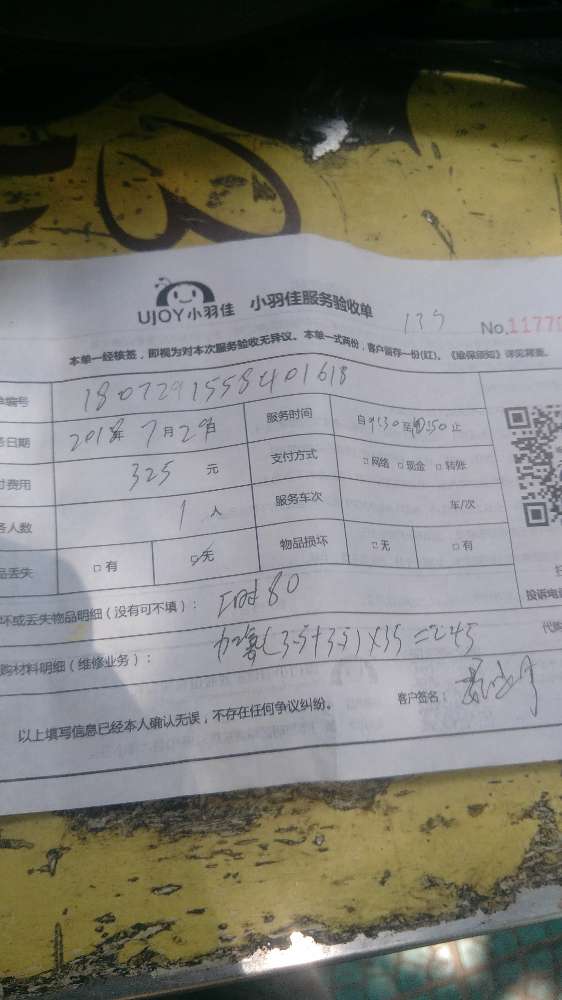 UJOY小羽佳 小羽佳服务验收单
135 No.1177
本单一经核签，即视为对本次服务验收无异议。本单一式两份，客户留存一份(红)。《验保须知》详见背面。
单编号 1807291558401618
务日期 2018年7月29日 服务时间 自9:30至10:50止
付费用 325 元 支付方式 □网络 □现金 □转账
务人数 1 人 服务车次 年/次
品丢失 □有 ☑无 物品损坏 □无 □有
坏或丢失物品明细（没有可不填）： 工时80
购材料明细（维修业务）： 加氟(3.5+3.5)×35=245 代购
投诉电
以上填写信息已经本人确认无误，不存在任何争议纠纷。 客户签名：